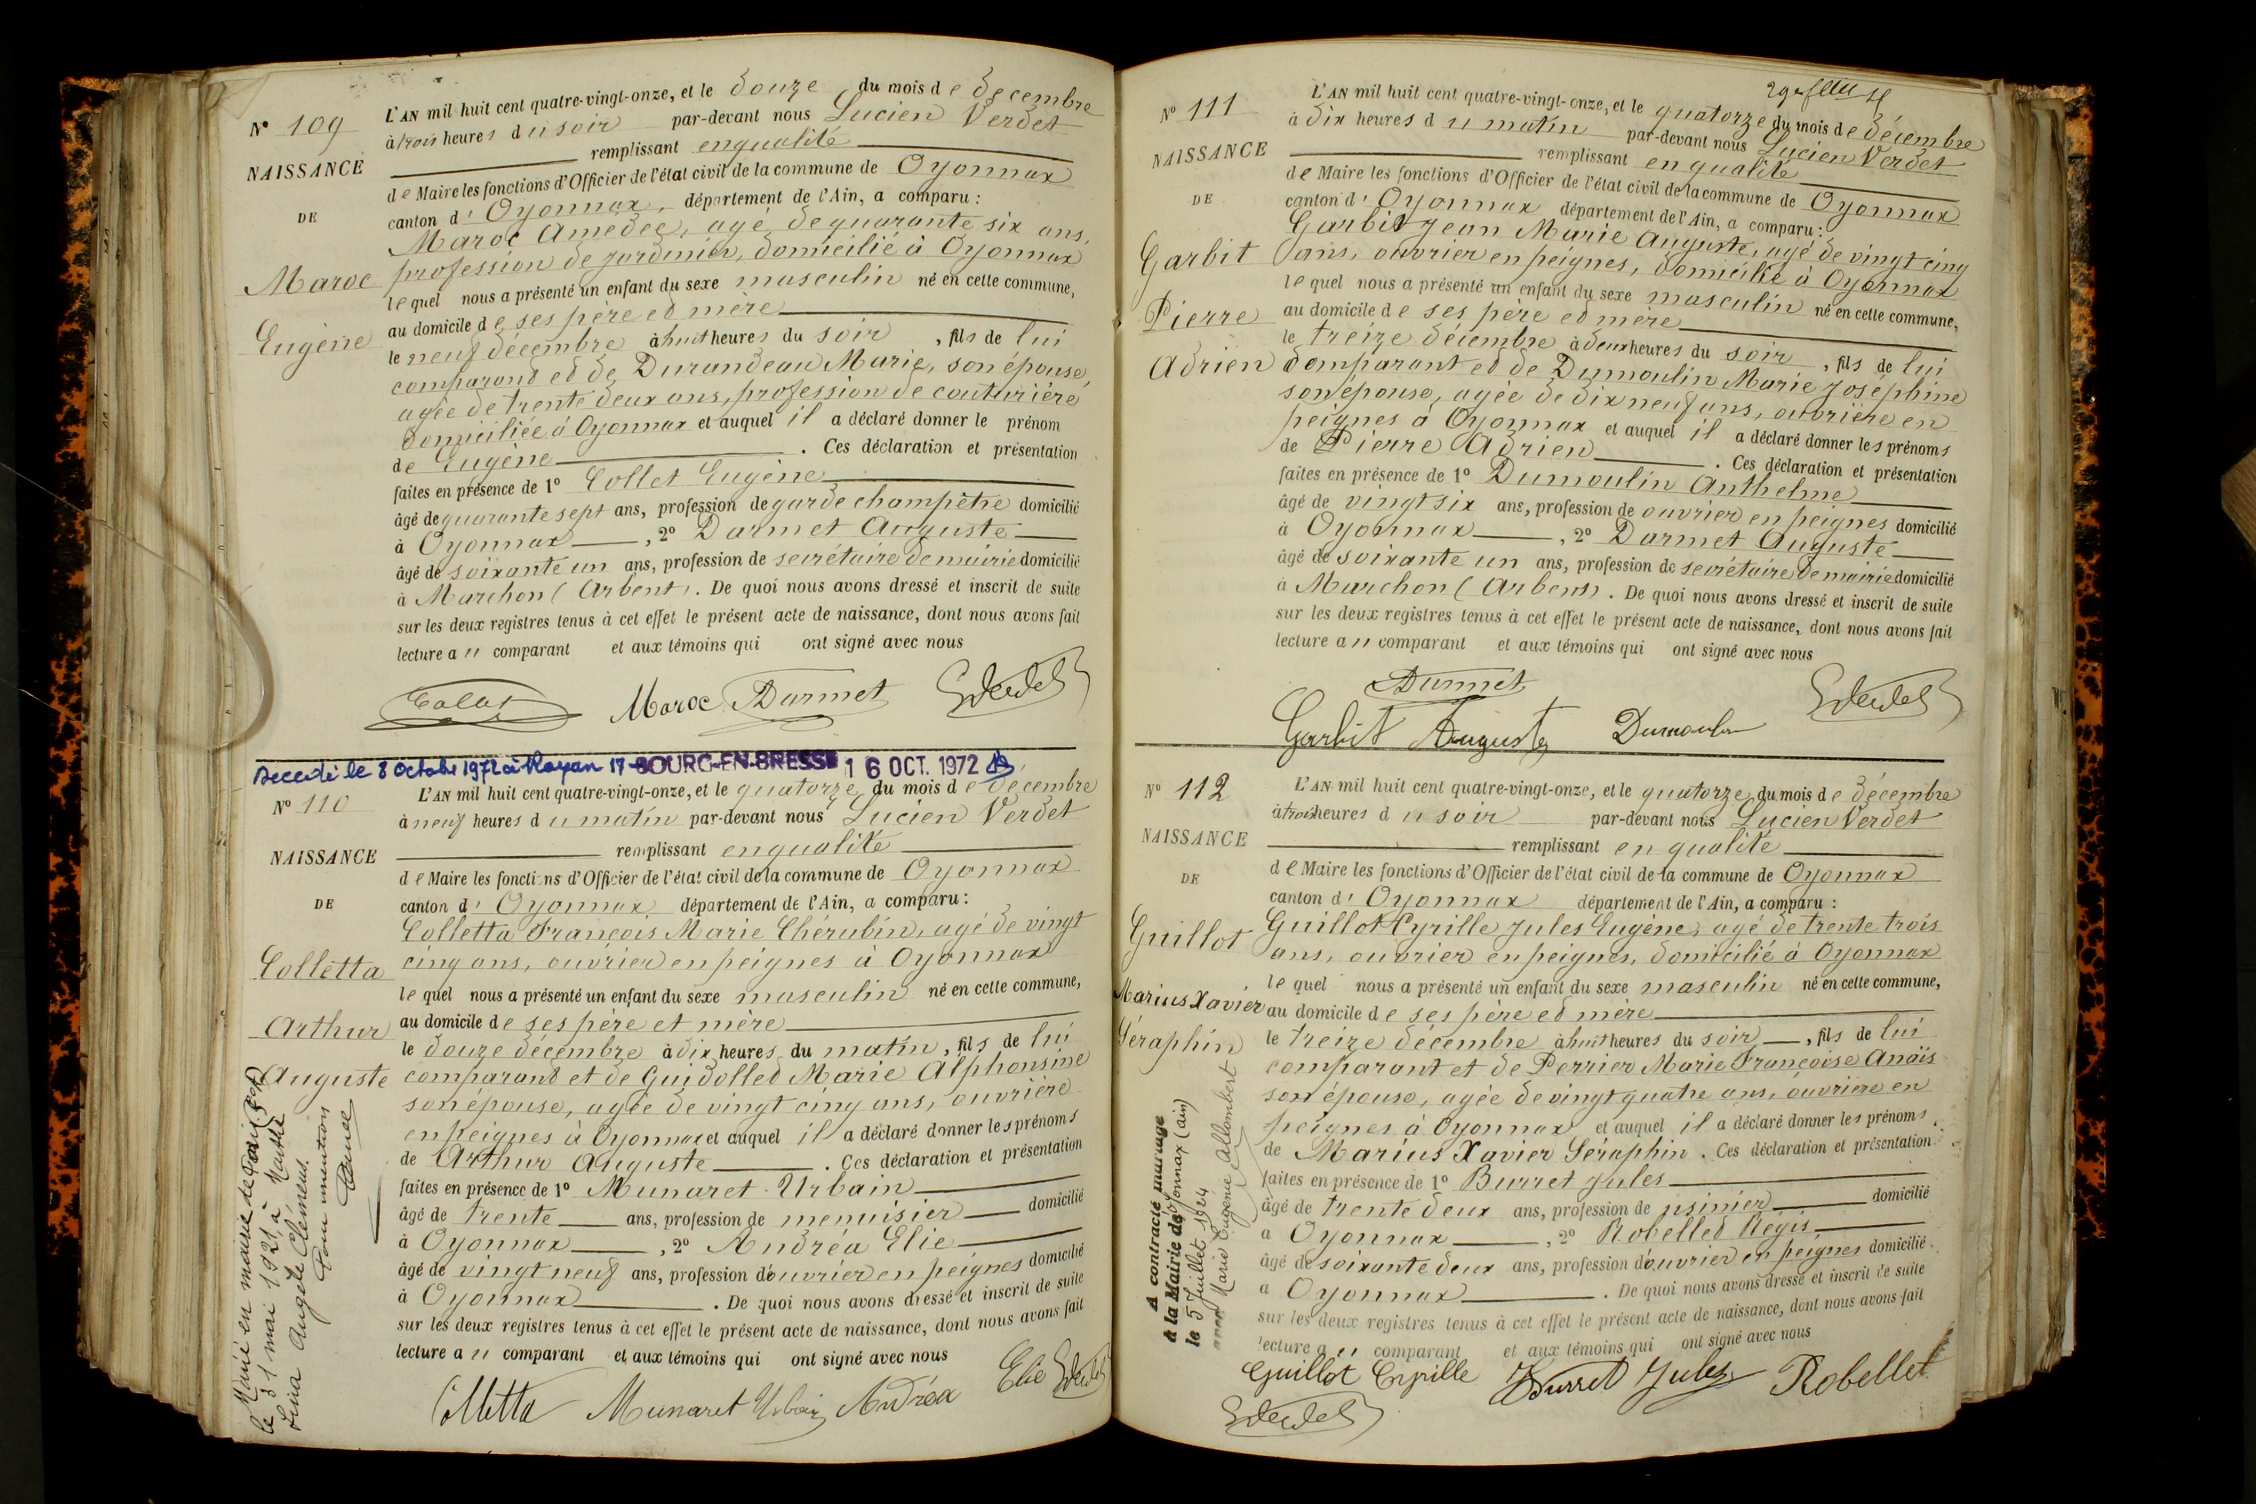 N° 109
NAISSANCE
DE
Maroc
Eugène
L'AN mil huit cent quatre-vingt-onze, et le douze du mois de décembre
à trois heures du soir par-devant nous Lucien Verdet
remplissant en qualité
de Maire les fonctions d'Officier de l'état civil de la commune de Oyonnax
canton d' Oyonnax, département de l'Ain, a comparu :
Maroc Amédée, agé de quarante six ans,
profession de jardinier, domicilié à Oyonnax
lequel nous a présenté un enfant du sexe masculin né en cette commune,
au domicile de ses père et mère
le neuf décembre à huit heures du soir, fils de lui
comparant et de Durandeau Marie, son épouse,
agée de trente deux ans, profession de couturière
domiciliée à Oyonnax et auquel il a déclaré donner le prénom
de Eugène. Ces déclaration et présentation
faites en présence de 1° Collet Eugène
âgé de quarante sept ans, profession de garde champêtre domicilié
à Oyonnax, 2° Darmet Auguste
âgé de soixante un ans, profession de secrétaire de mairie domicilié
à Marchon (Arbent). De quoi nous avons dressé et inscrit de suite
sur les deux registres tenus à cet effet le présent acte de naissance, dont nous avons fait
lecture au comparant et aux témoins qui ont signé avec nous
Collet Maroc Darmet LVerdet
Décédé le 8 Octobre 1972 à Royan 17 BOURG-EN-BRESSE 16 OCT. 1972
N° 110
NAISSANCE
DE
Colletta
Arthur
Auguste
L'AN mil huit cent quatre-vingt-onze, et le quatorze du mois de décembre
à neuf heures du matin par-devant nous Lucien Verdet
remplissant en qualité
de Maire les fonctions d'Officier de l'état civil de la commune de Oyonnax
canton d' Oyonnax département de l'Ain, a comparu :
Colletta François Marie Chérubin, agé de vingt
cinq ans, ouvrier en peignes à Oyonnax
lequel nous a présenté un enfant du sexe masculin né en cette commune,
au domicile de ses père et mère
le douze décembre à dix heures du matin, fils de lui
comparant et de Guidollet Marie Alphonsine
son épouse, agée de vingt cinq ans, ouvrière
en peignes à Oyonnax et auquel il a déclaré donner les prénoms
de Arthur Auguste. Ces déclaration et présentation
faites en présence de 1° Munaret Urbain
âgé de trente ans, profession de menuisier domicilié
à Oyonnax, 2° Andréa Elie
âgé de vingt neuf ans, profession d'ouvrier en peignes domicilié
à Oyonnax. De quoi nous avons dressé et inscrit de suite
sur les deux registres tenus à cet effet le présent acte de naissance, dont nous avons fait
lecture au comparant et aux témoins qui ont signé avec nous
Colletta Munaret Urbain Andréa Elie LVerdet
Marié en mairie de Paris
le 31 mai 1921 à
Lina Angèle Clémens.
Pour mention
N° 111
NAISSANCE
DE
Garbit
Pierre
Adrien
L'AN mil huit cent quatre-vingt-onze, et le quatorze du mois de décembre
à dix heures du matin par-devant nous Lucien Verdet
remplissant en qualité
de Maire les fonctions d'Officier de l'état civil de la commune de Oyonnax
canton d' Oyonnax département de l'Ain, a comparu :
Garbit Jean Marie Auguste, agé de vingt cinq
ans, ouvrier en peignes, domicilié à Oyonnax
lequel nous a présenté un enfant du sexe masculin né en cette commune,
au domicile de ses père et mère
le treize décembre à deux heures du soir, fils de lui
comparant et de Dumoulin Marie Joséphine
son épouse, agée de dix neuf ans, ouvrière en
peignes à Oyonnax et auquel il a déclaré donner les prénoms
de Pierre Adrien. Ces déclaration et présentation
faites en présence de 1° Dumoulin Anthelme
âgé de vingt six ans, profession de ouvrier en peignes domicilié
à Oyonnax, 2° Darmet Auguste
âgé de soixante un ans, profession de secrétaire de mairie domicilié
à Marchon (Arbent). De quoi nous avons dressé et inscrit de suite
sur les deux registres tenus à cet effet le présent acte de naissance, dont nous avons fait
lecture au comparant et aux témoins qui ont signé avec nous
Darmet LVerdet
Garbit Auguste Dumoulin
N° 112
NAISSANCE
DE
Guillot
Marius Xavier
Séraphin
L'AN mil huit cent quatre-vingt-onze, et le quatorze du mois de décembre
à trois heures du soir par-devant nous Lucien Verdet
remplissant en qualité
de Maire les fonctions d'Officier de l'état civil de la commune de Oyonnax
canton d' Oyonnax département de l'Ain, a comparu :
Guillot Cyrille Jules Eugène, agé de trente trois
ans, ouvrier en peignes, domicilié à Oyonnax
lequel nous a présenté un enfant du sexe masculin né en cette commune,
au domicile de ses père et mère
le treize décembre à huit heures du soir, fils de lui
comparant et de Perrier Marie Françoise Anaïs
son épouse, agée de vingt quatre ans, ouvrière en
peignes à Oyonnax et auquel il a déclaré donner les prénoms
de Marius Xavier Séraphin. Ces déclaration et présentation
faites en présence de 1° Burret Jules
âgé de trente deux ans, profession de usinier domicilié
à Oyonnax, 2° Robellet Régis
âgé de soixante deux ans, profession d'ouvrier en peignes domicilié
à Oyonnax. De quoi nous avons dressé et inscrit de suite
sur les deux registres tenus à cet effet le présent acte de naissance, dont nous avons fait
lecture au comparant et aux témoins qui ont signé avec nous
Guillot Cyrille Burret Jules Robellet
LVerdet
A contracté mariage
à la Mairie de Oyonnax (Ain)
le 5 Juillet 1924
avec Marie Eugénie Allombert